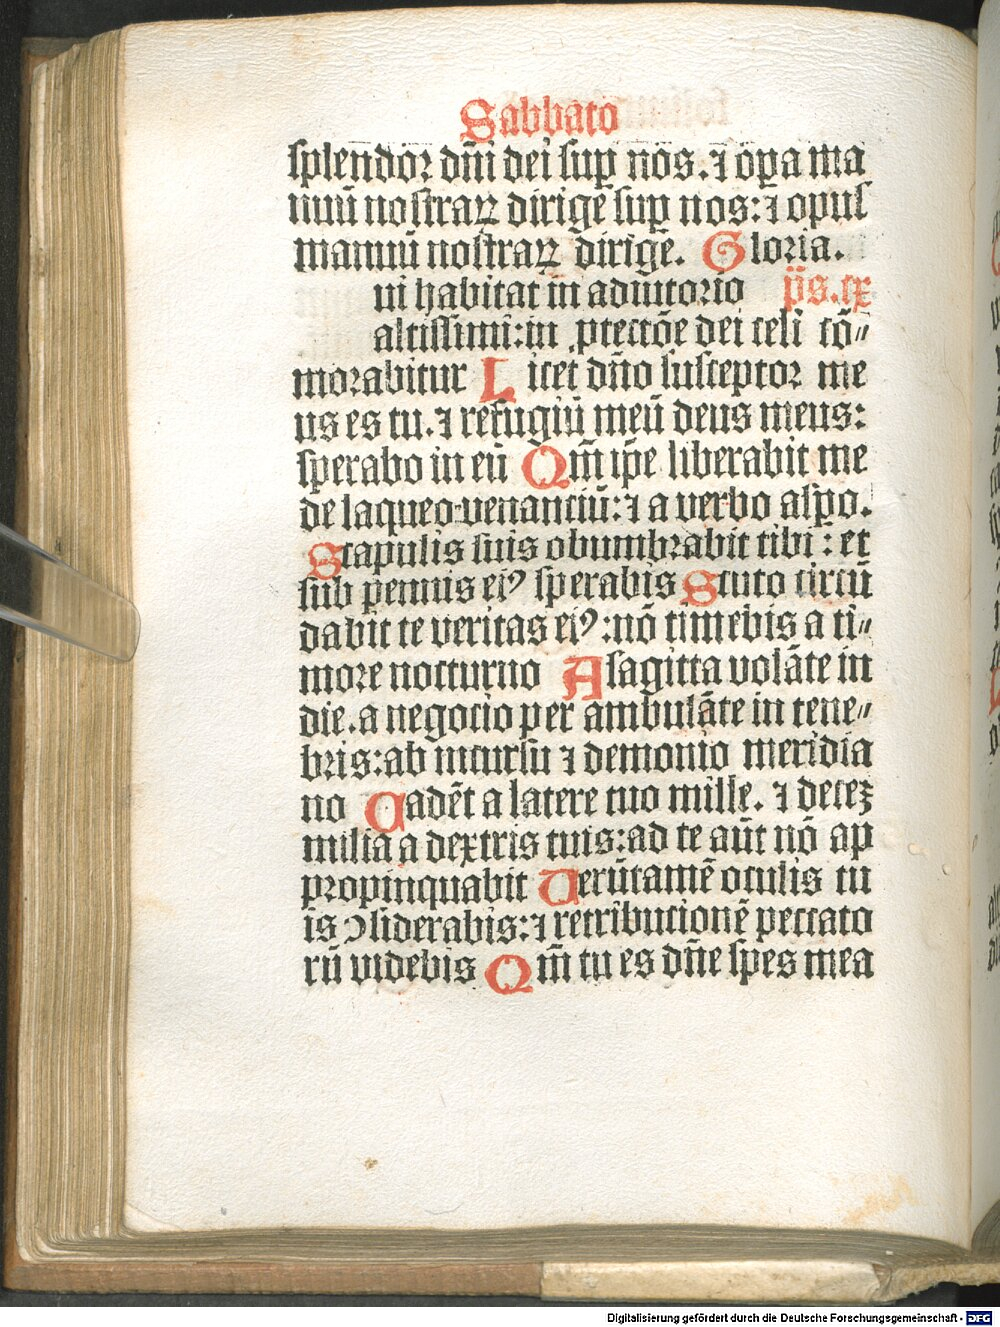 Sabbato
splendor dñi dei sup nos. ⁊ opa ma
nuū nostraꝝ dirige sup nos: ⁊ opus
manuū nostraꝝ dirige. Gloria.
ui habitat in adiutorio p̄s. xc
altissimi: in ꝓtectōe dei celi cō⸗
morabitur Licet dño susceptor me
us es tu. ⁊ refugiū meū deus meus:
sperabo in eū Qm̄ ip̄e liberabit me
de laqueo venanciū: ⁊ a verbo aspo.
Scapulis suis obumbrabit tibi: et
sub pennis eiꝰ sperabis Scuto circū
dabit te veritas eiꝰ: nō timebis a ti⸗
more nocturno A sagitta volāte in
die. a negocio per ambulāte in tene⸗
bris: ab incursu ⁊ demonio meridia
no Cadēt a latere tuo mille. ⁊ deceꝫ
milia a dextris tuis: ad te aūt nō ap
propinquabit Uerūtamē oculis tu
is ꝯsiderabis: ⁊ retributionē peccato
rū videbis Qm̄ tu es dñe spes mea
Digitalisierung gefördert durch die Deutsche Forschungsgemeinschaft - DFG